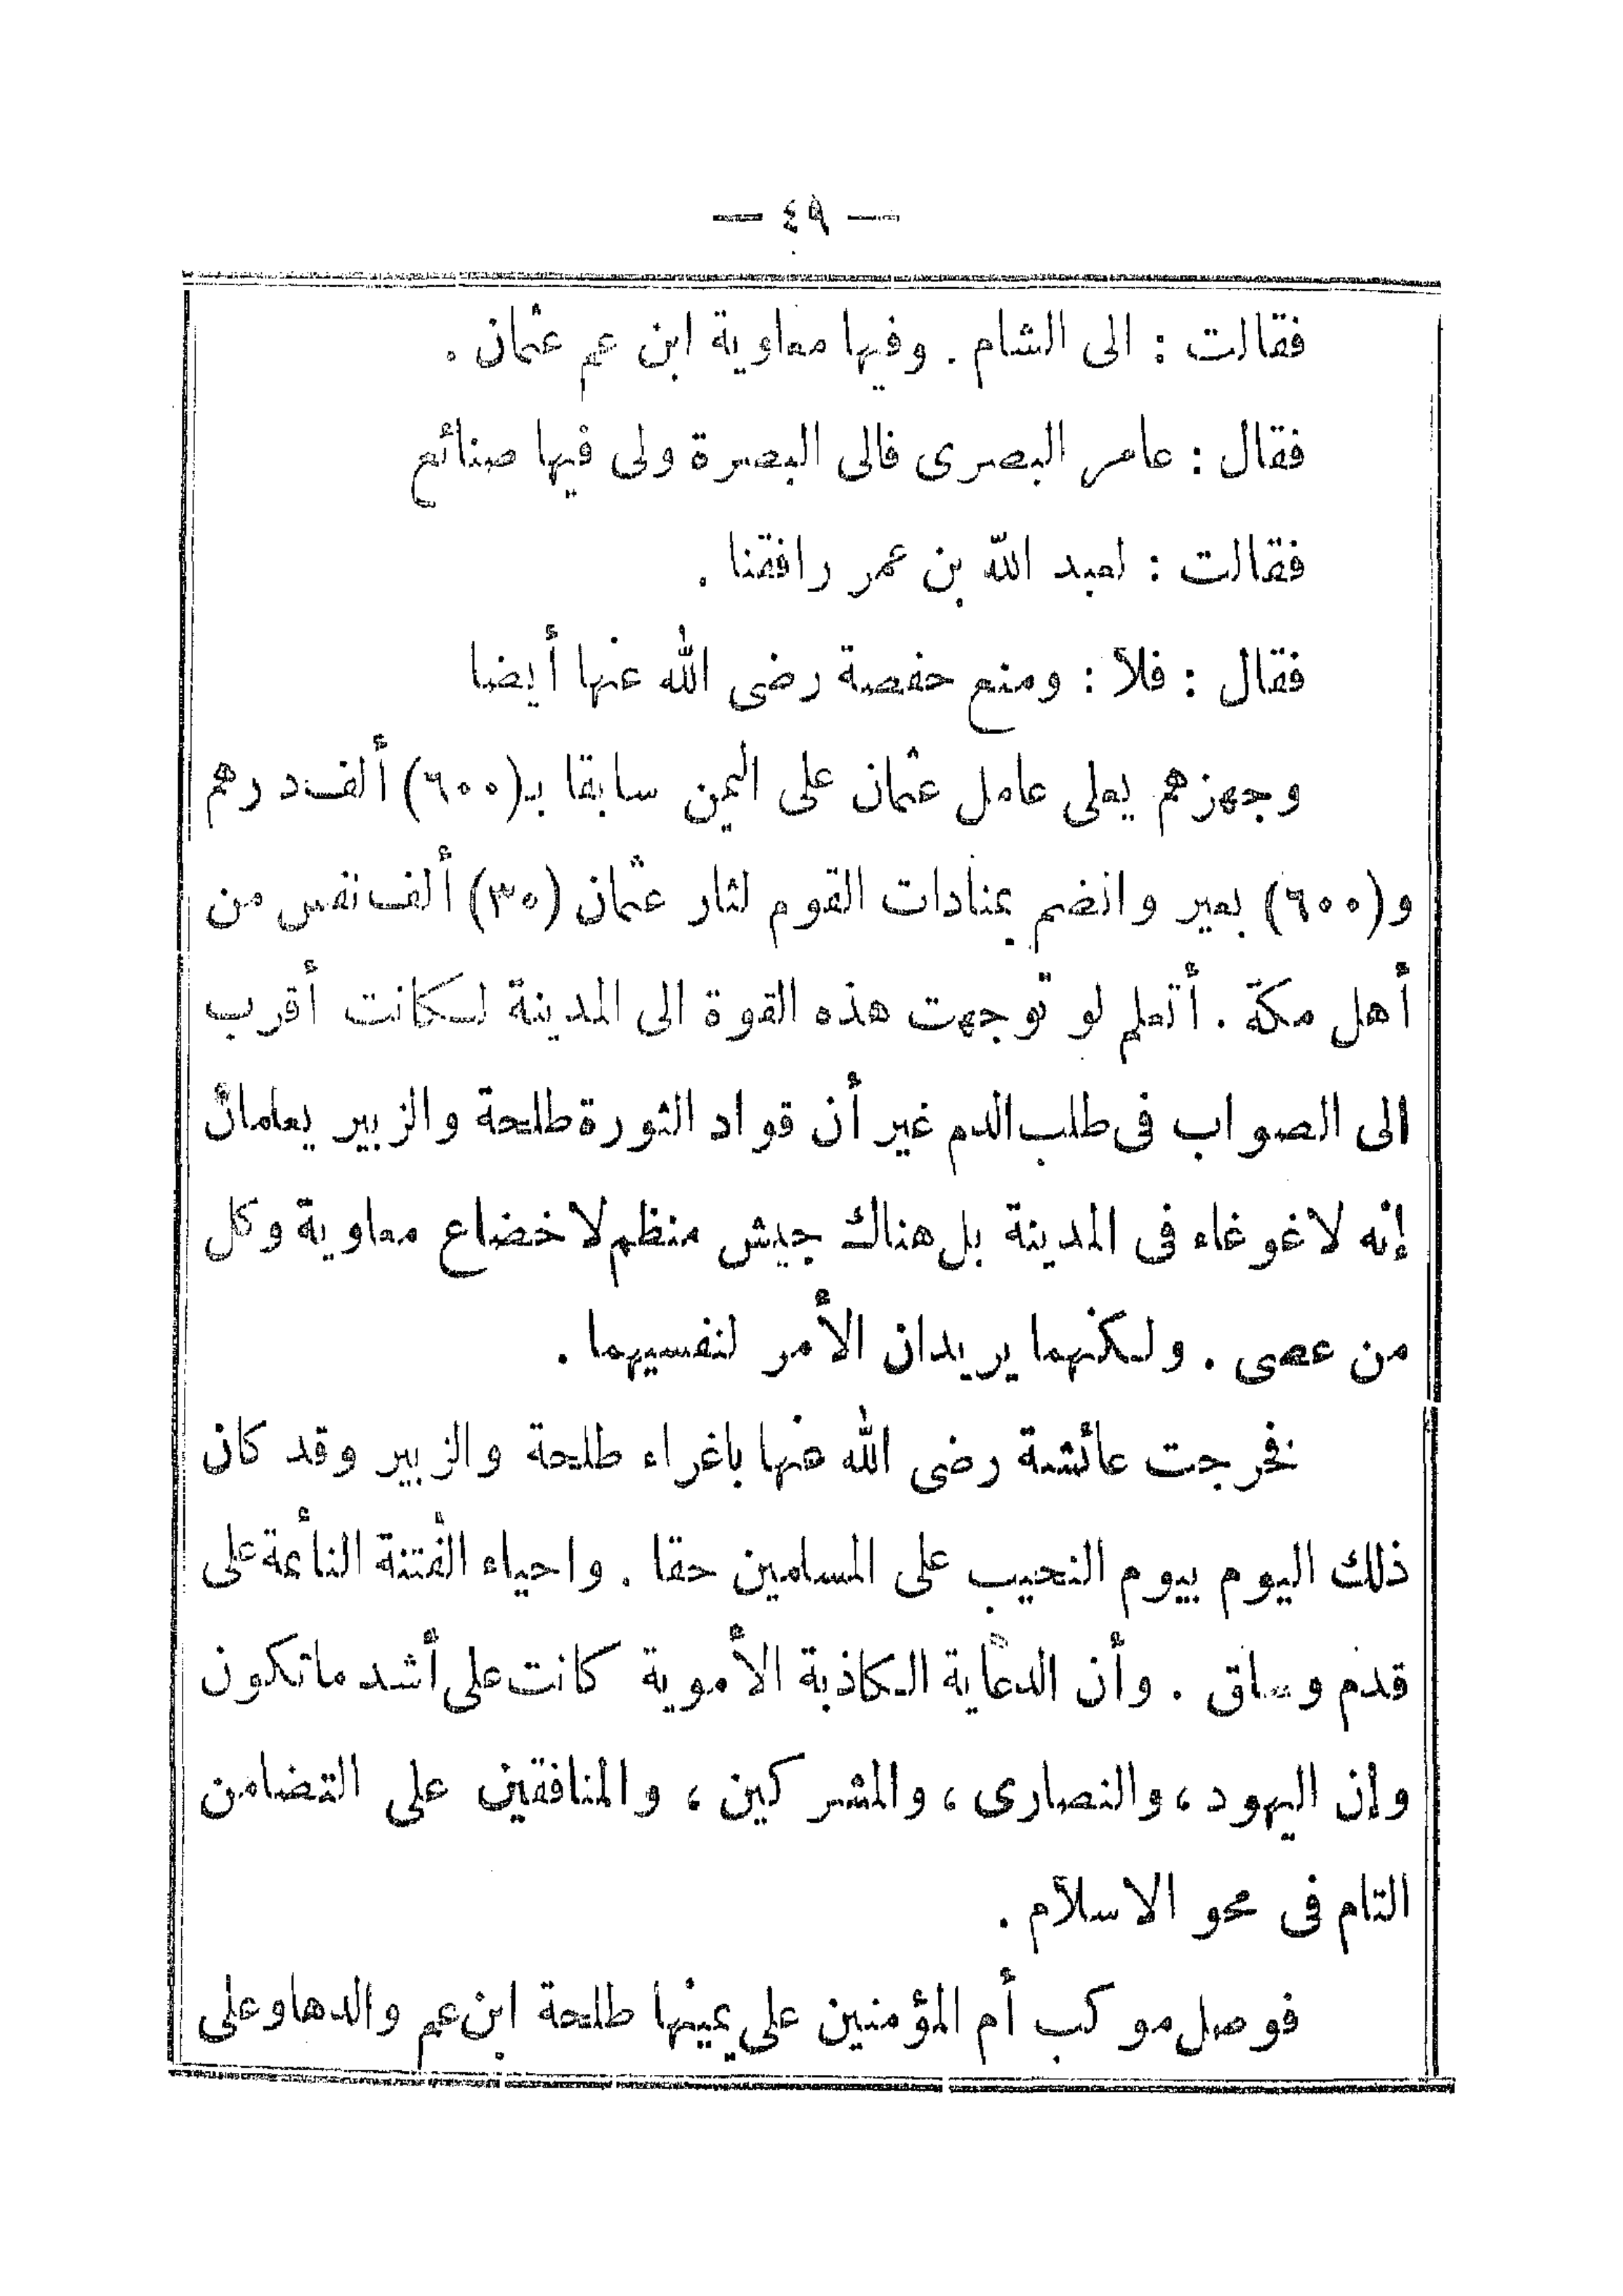 — ٤٩ —
فقالت : الى الشام . وفيها معاوية ابن عم عثمان .
فقال : عامر البصرى فالى البصرة ولى فيها صنائع
فقالت : لعبد الله بن عمر رافقنا .
فقال : فلا : ومنع حفصة رضى الله عنها أيضا
وجهزهم يعلى عامل عثمان على اليمن سابقا بـ(٦٠٠) ألف درهم
و(٦٠٠) بعير وانضم بمنادات القوم لثار عثمان (٣٠) ألف نفس من
أهل مكة . أتعلم لو توجهت هذه القوة الى المدينة لكانت أقرب
الى الصواب فى طلب الدم غير أن قواد الثورة طلحة والزبير يعلمان
إنه لاغوغاء فى المدينة بل هناك جيش منظم لاخضاع معاوية وكل
من عصى . ولكنهما يريدان الأمر لنفسيهما .
فخرجت عائشة رضى الله عنها باغراء طلحة والزبير وقد كان
ذلك اليوم بيوم النحيب على المسلمين حقا . واحياء الفتنة النأئمة على
قدم وساق . وأن الدعاية الكاذبة الأموية كانت على أشد ماتكون
وإن اليهود ، والنصارى ، والمشركين ، والمنافقين على التضامن
التام فى محو الاسلام .
فوصل موكب أم المؤمنين على يمينها طلحة ابن عم والدها وعلى